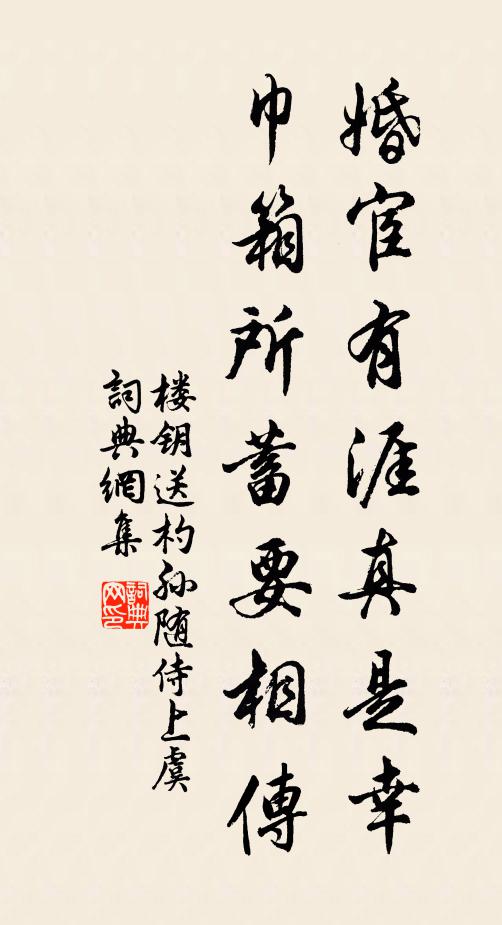 婚宦有涯真是幸
巾箱所蓄要相傳
楼钥送杓孙随侍上虞
詞典網集
詞典网印